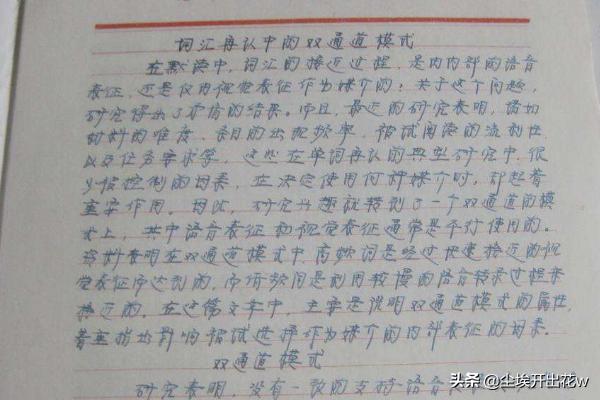 词汇再认中的双通道模式
在默读中,词汇的接近过程,是由内部的语音
表征,还是仅由视觉表征作为媒介的?关于这个问题,
研究得出了矛盾的结果。而且,最近的研究表明,诸如
材料的难度、条目的出现频率、被试阅读的流利性
以及任务要求等,这些在单词再认的典型研究中,很
少被控制的因素,在决定使用何种媒介时,都起着
重要作用。因此,研究兴趣就转到了一个双通道的模
式上,其中语音表征和视觉表征通常是平行使用的。
资料表明在双通道模式中,高频词是经过快速接近的视
觉表征而达到的,而低频词是利用较慢的语音转录过程来
接近的。在这篇文章中,主要是说明双通道模式的属性,
着重指出影响被试选择作为媒介的内部表征的因素。
双通道模式
研究表明,没有一致的支持语音
头条 @尘埃开出花w